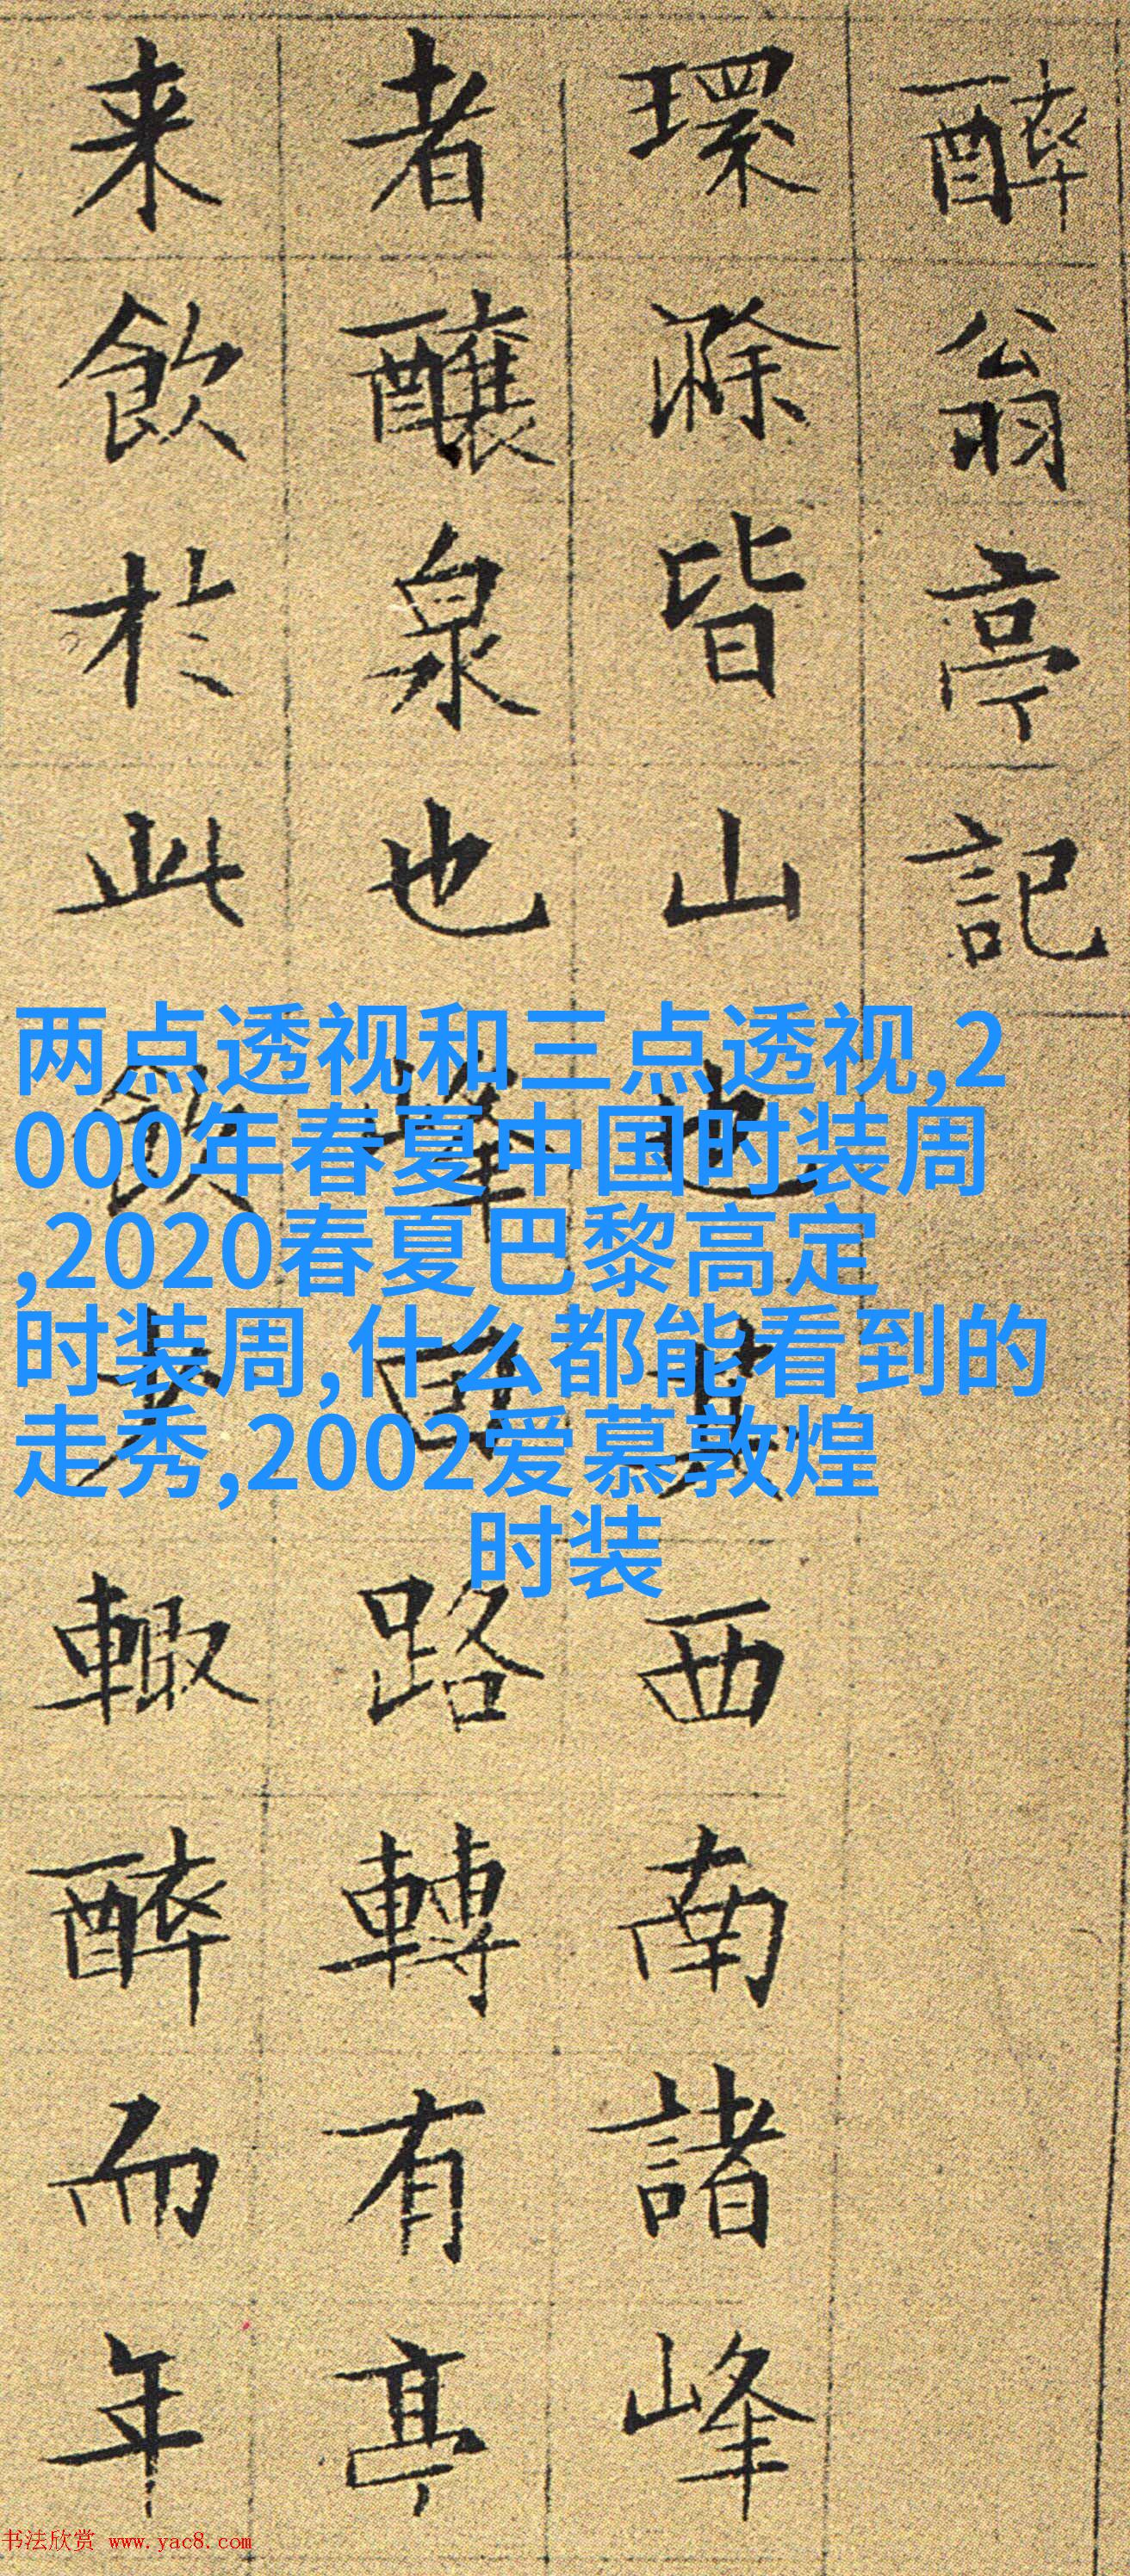 醉翁亭記
環滁皆山也其西南諸峰
者釀泉也峰回路轉有亭
来飲於此飲少輒醉而年
两点透视和三点透视,2
000年春夏中国时装周
,2020春夏巴黎高定
时装周,什么都能看到的
走秀,2002爱慕敦煌
时装
书法欣赏 www.yac8.com